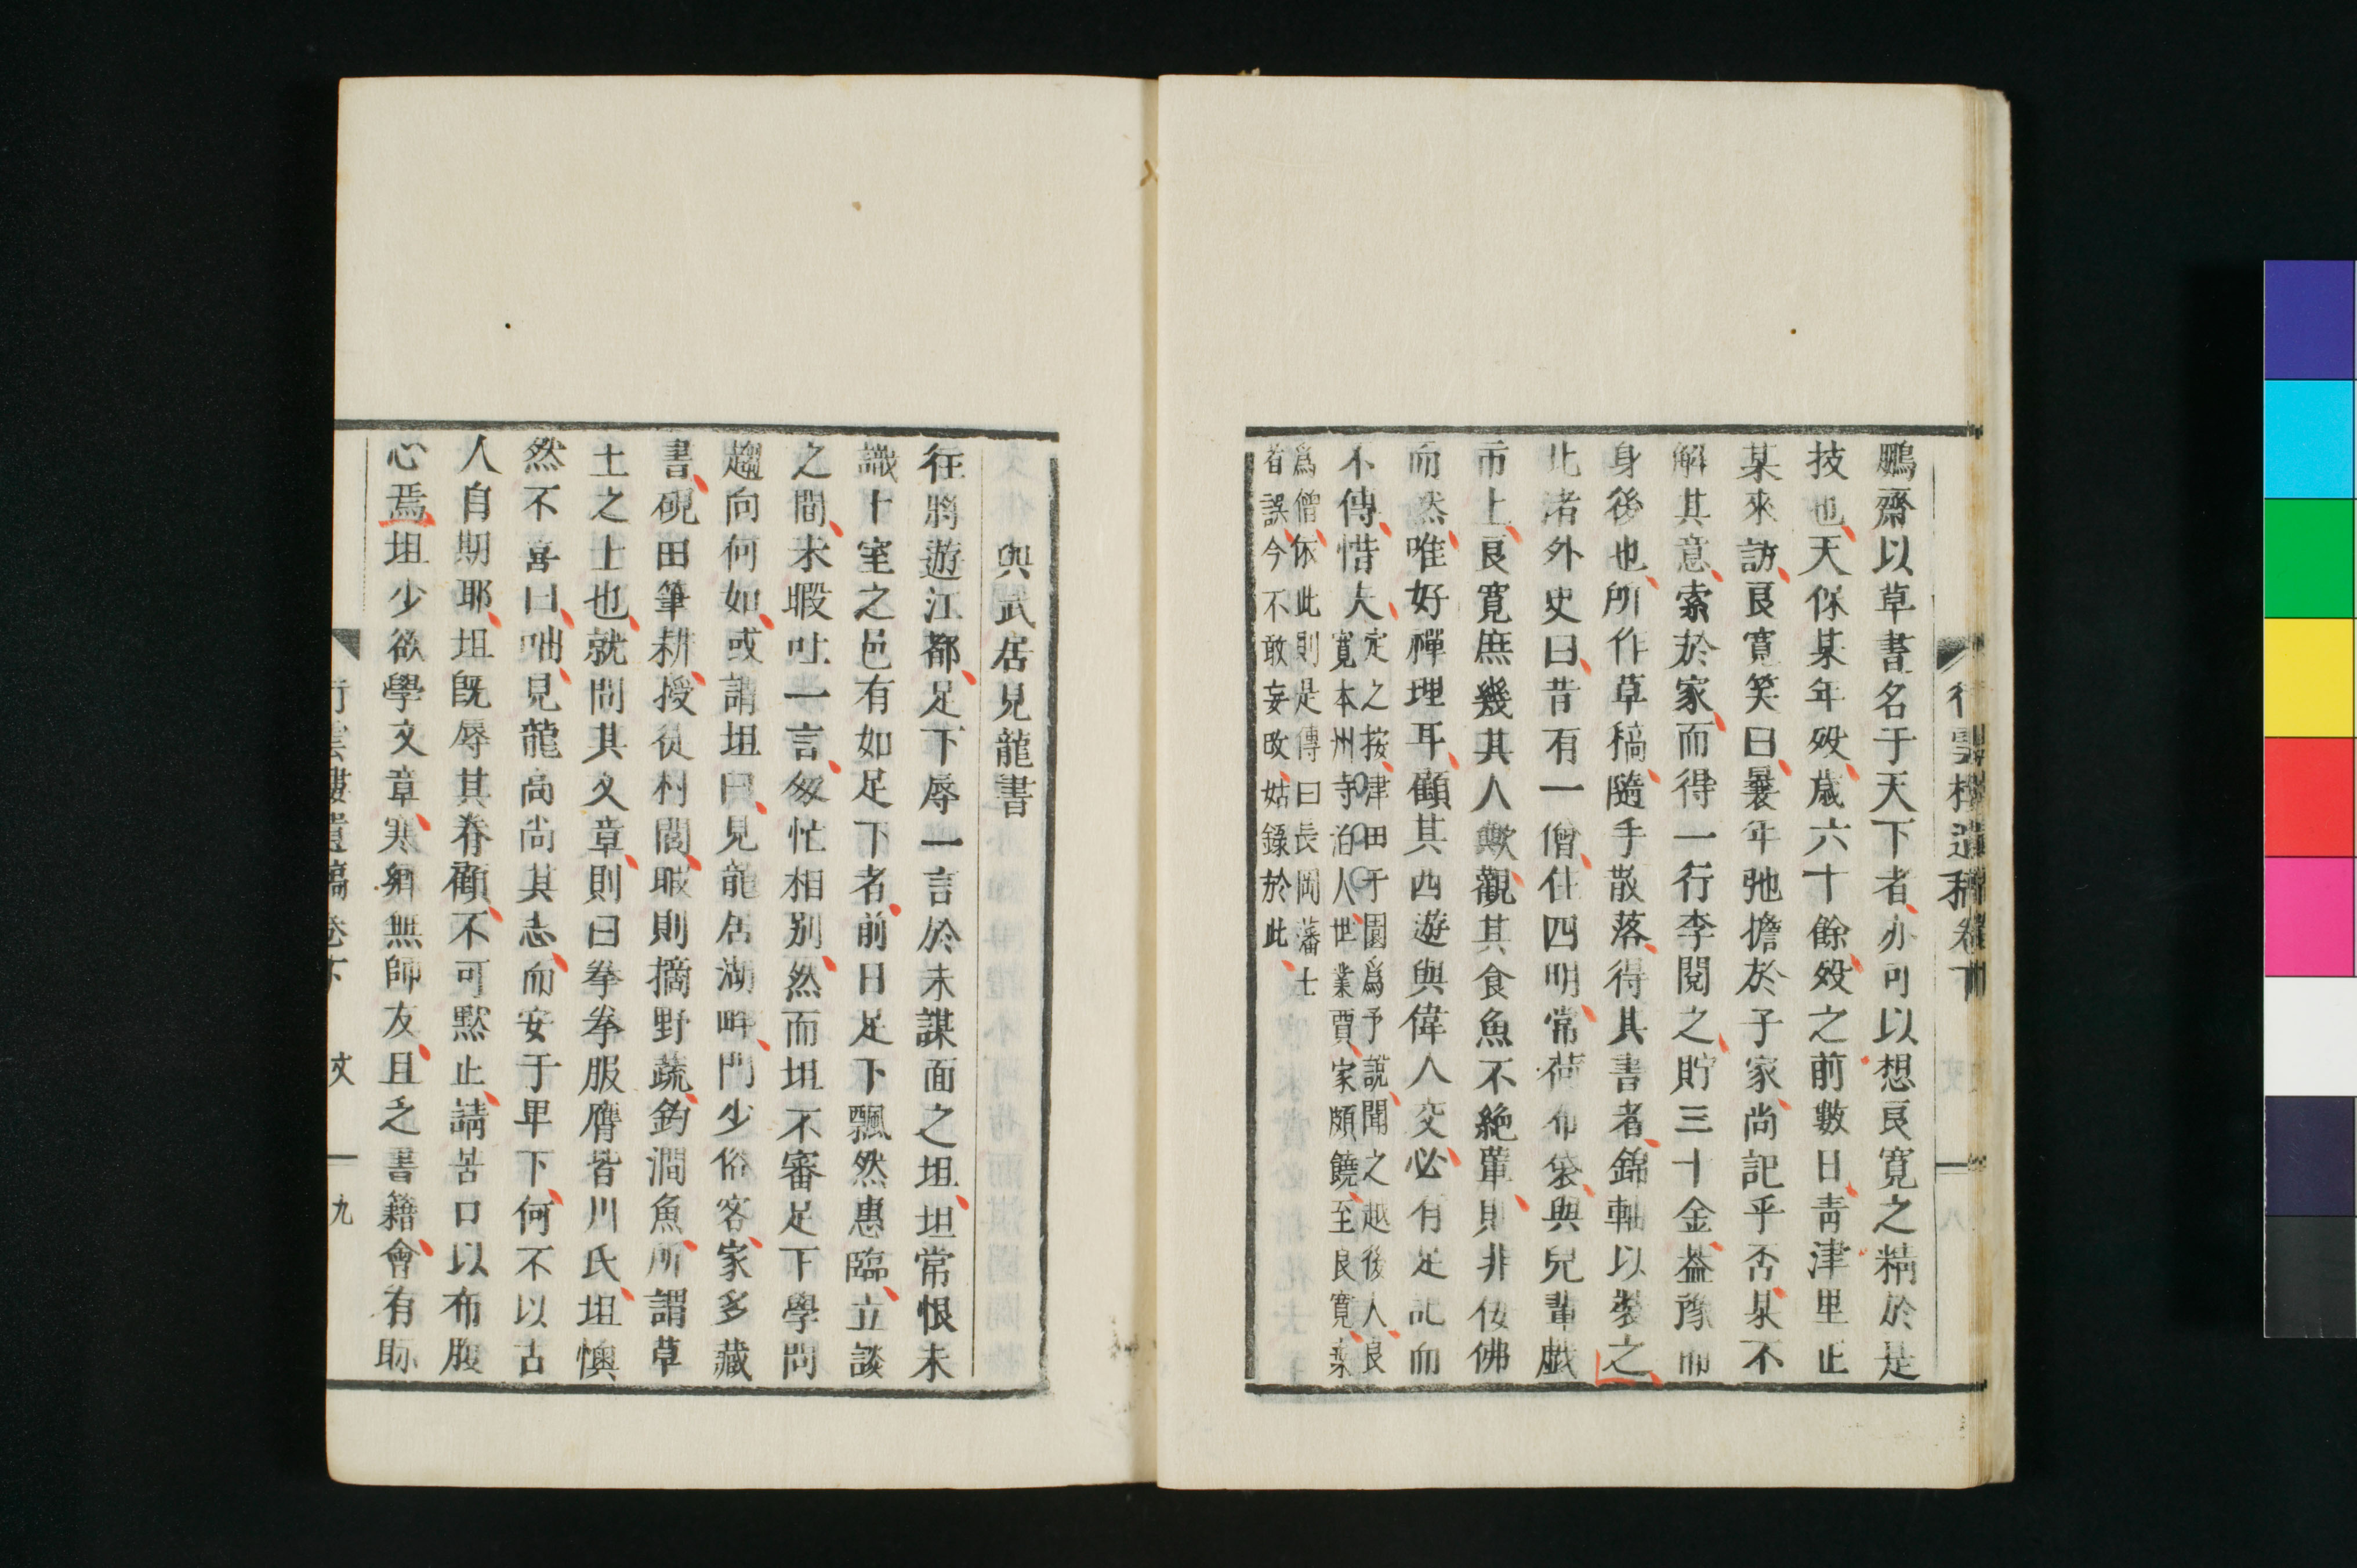 鵬齋以草書名于天下者亦可以想良寛之精於是
技也天保某年歿歳六十餘歿之前數日青津里正
某來訪良寛笑曰曩年弛擔於子家尚記乎否某不
解其意索於家而得一行李閲之貯三十金葢豫而
身後也所作草稿隨手散落得其書者錦軸以裝之
北渚外史曰昔有一僧住四明常荷布袋與兒輩戯
市上良寛庶幾其人歟觀其食魚不絶葷則非佞佛
而然唯好禪理耳顧其西遊與偉人交必有足記而
不傳惜夫
定之按津田于園爲予説聞之越後人良
寛本州寺泊人世業賈家頗饒至良寛棄
爲僧依此則是傳曰長岡藩士
者誤今不敢妄改姑録於此
與武居見龍書
往將遊江都足下辱一言於未謀面之坦坦常恨未
識十室之邑有如足下者前日足下飄然惠臨立談
之間未暇吐一言怱忙相別然而坦不審足下學問
趨向何如或謂坦曰見龍居湖畔門少俗客家多藏
書硯田筆耕授徒村閭暇則摘野蔬釣澗魚所謂草
土之士也就問其文章則曰拳拳服膺皆川氏坦懊
然不喜曰咄見龍高尚其志而安于卑下何不以古
人自期耶坦既辱其眷顧不可默止請苦口以布腹
心焉坦少欲學文章寒郷無師友且乏書籍會有聊
行雲樓遺稿卷下
文
九